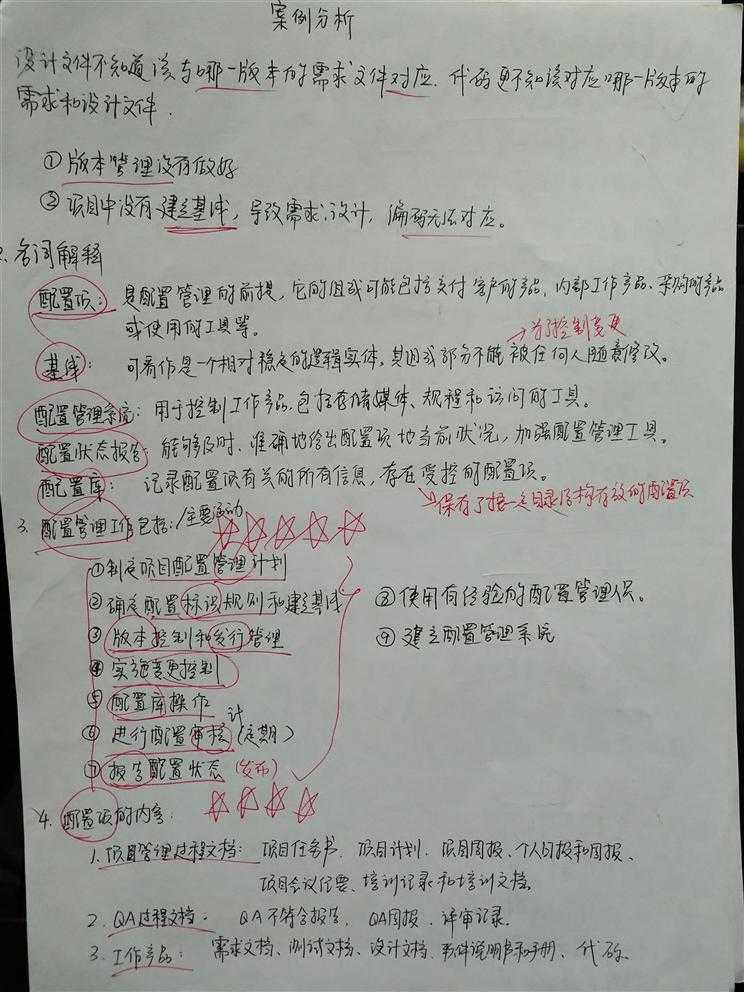 案例分析
设计文件不知道该与哪一版本的需求文件对应. 代码更不知该对应哪一版本的
需求和设计文件.
①版本管理没有做好
②项目中没有建立基线, 导致需求、设计, 编码无法对应。
2. 名词解释
配置项: 是配置管理的前提, 它的组成可能包括交付客户的产品, 内部工作产品、采购的产品
或使用的工具等。
→为了控制变更
基线: 可看作是一个相对稳定的逻辑实体, 其组成部分不能被任何人随意修改。
配置管理系统: 用于控制工作产品, 包括存储媒体、规程和访问的工具。
配置状态报告: 能够及时、准确地给出配置项地当前状况, 加强配置管理工具。
配置库: 记录配置项有关的所有信息, 存在受控的配置项。
保存了按一定目录结构存放的配置项
3. 配置管理工作包括: /主要活动
①制定项目配置管理计划
②确定配置标识规则和建立基线
③版本控制和发行管理
④实施变更控制
⑤配置库操作
⑥进行配置审核(定期)
计
⑦报告配置状态(发布)
⑧使用有经验的配置管理员。
⑨建立配置管理系统
4. 配置项的内容:
1. 项目管理过程文档: 项目任务书. 项目计划. 项目周报、个人日报和周报、
项目会议纪要、培训记录和培训文档。
2. QA过程文档: QA不符合报告. QA周报. 评审记录.
3. 工作产品: 需求文档、测试文档、设计文档. 软件说明书和手册、代码.